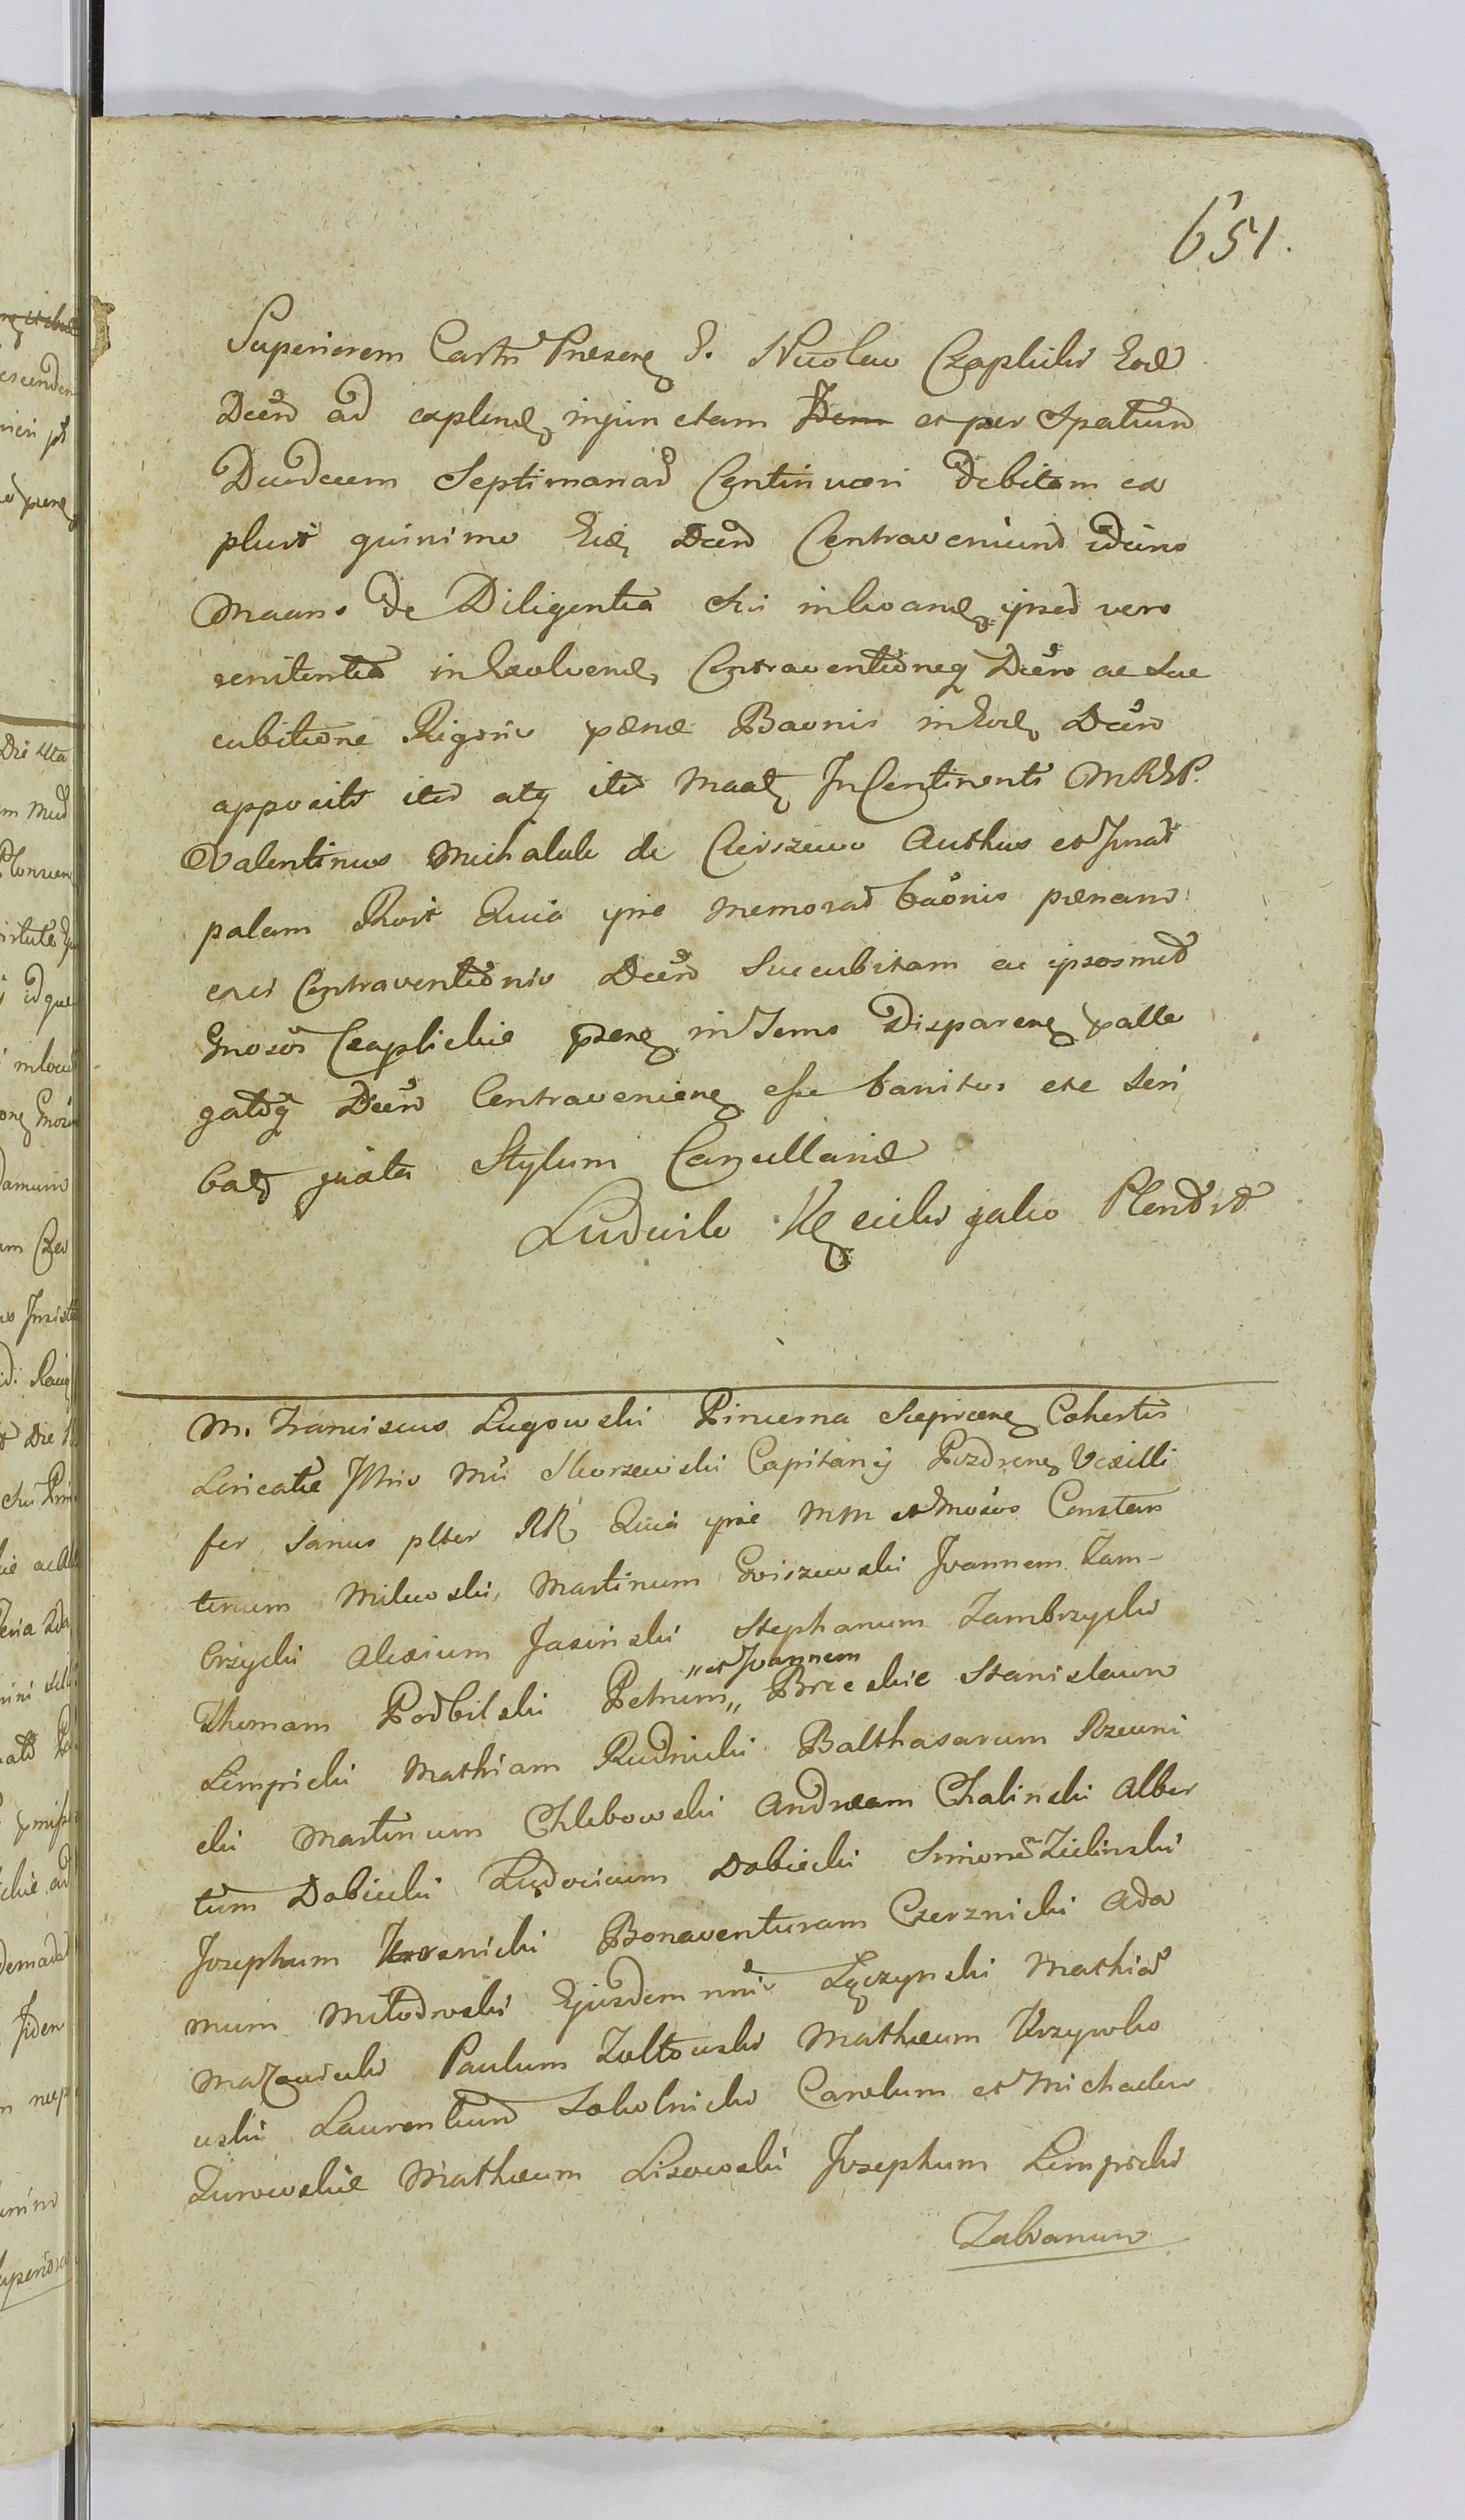 651.
Superiorem Castri Praesene G. Nicolao Czaplicki Eod
Decrd ad explend injunctam et per Spatium
Duodecem Septimanar Continuari debitam ex
plevit quinimo Decrd Contraveniend
Maans de Diligentia Sui inhoand ipsed vero
renitentia in Exolvend Contraventioneq Decro ac Suc
cubitione Rigoris paenae Baonis in Eod Decro
apposite ited atq ited Maat In Continenti MRGP.
Valentinus Michalak de Cierszewo Authus et Jurat
palam Rvit Quia ipse memorat baonis paenam
Contraventionis Decrd Succubitam ac ipsosmet
Gnosos Czaplickie in Termo Disparene palle
gatoq Decro Contraveniene esse banitos etc Scri
bat juxta Stylum Cancellariae
Ludwik Kęcicki jako Plend
M. Franciscus Lugowski Pincerna Sieprcene Cohortis
Loricatae Illmi Mci Skorzewski Capitanij Pozdrene Vexilli
fer Sanus plter RR Quia ipse MM et Gnosos Constan
tinum Milewski, Martinum Goiszewski Joannem Zam-
brzycki Alexium Jasinski Stephanum Zambrzycki
Thomam Podbilski Petrum „ et Joannem „ Brzeskie Stanislaum
Lempicki Mathiam Rudnicki Balthasarum Rzeuni
cki Martinum Chlebowski Andream Chalinski Alber
tum Dabiecki Ludovicum Dobiecki Simone Zielinski
Josephum Bonaventuram Czerznicki Ada
mum Młodowski Ejusdem nnis Lęczynski Mathia
Mazowiecki Paulum Zołtowski Mathaeum Krzywko
wski Laurentium Sokolnicki Carolum et Michaelem
Zurowskie Mathaeum Lisowski Josephum Lempicki